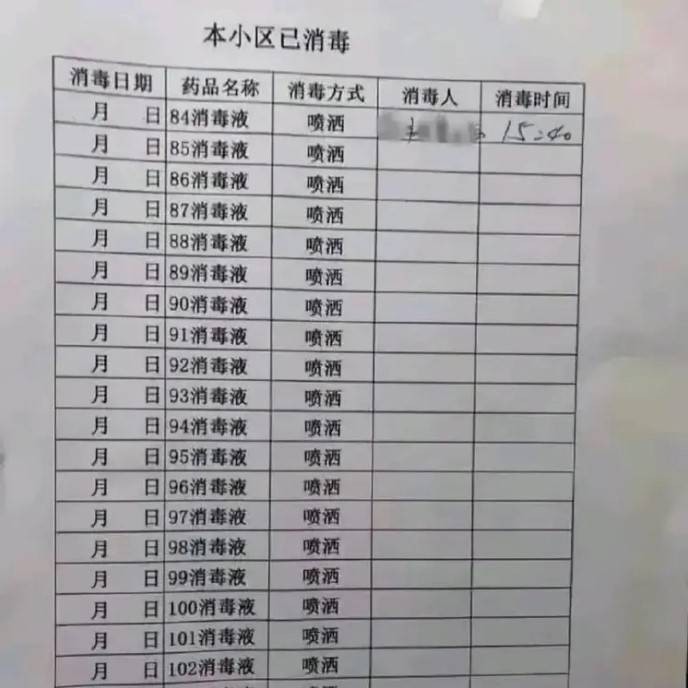 本小区已消毒
消毒日期 药品名称 消毒方式 消毒人 消毒时间
月 日 84消毒液 喷洒 15:40
月 日 85消毒液 喷洒
月 日 86消毒液 喷洒
月 日 87消毒液 喷洒
月 日 88消毒液 喷洒
月 日 89消毒液 喷洒
月 日 90消毒液 喷洒
月 日 91消毒液 喷洒
月 日 92消毒液 喷洒
月 日 93消毒液 喷洒
月 日 94消毒液 喷洒
月 日 95消毒液 喷洒
月 日 96消毒液 喷洒
月 日 97消毒液 喷洒
月 日 98消毒液 喷洒
月 日 99消毒液 喷洒
月 日 100消毒液 喷洒
月 日 101消毒液 喷洒
月 日 102消毒液 喷洒